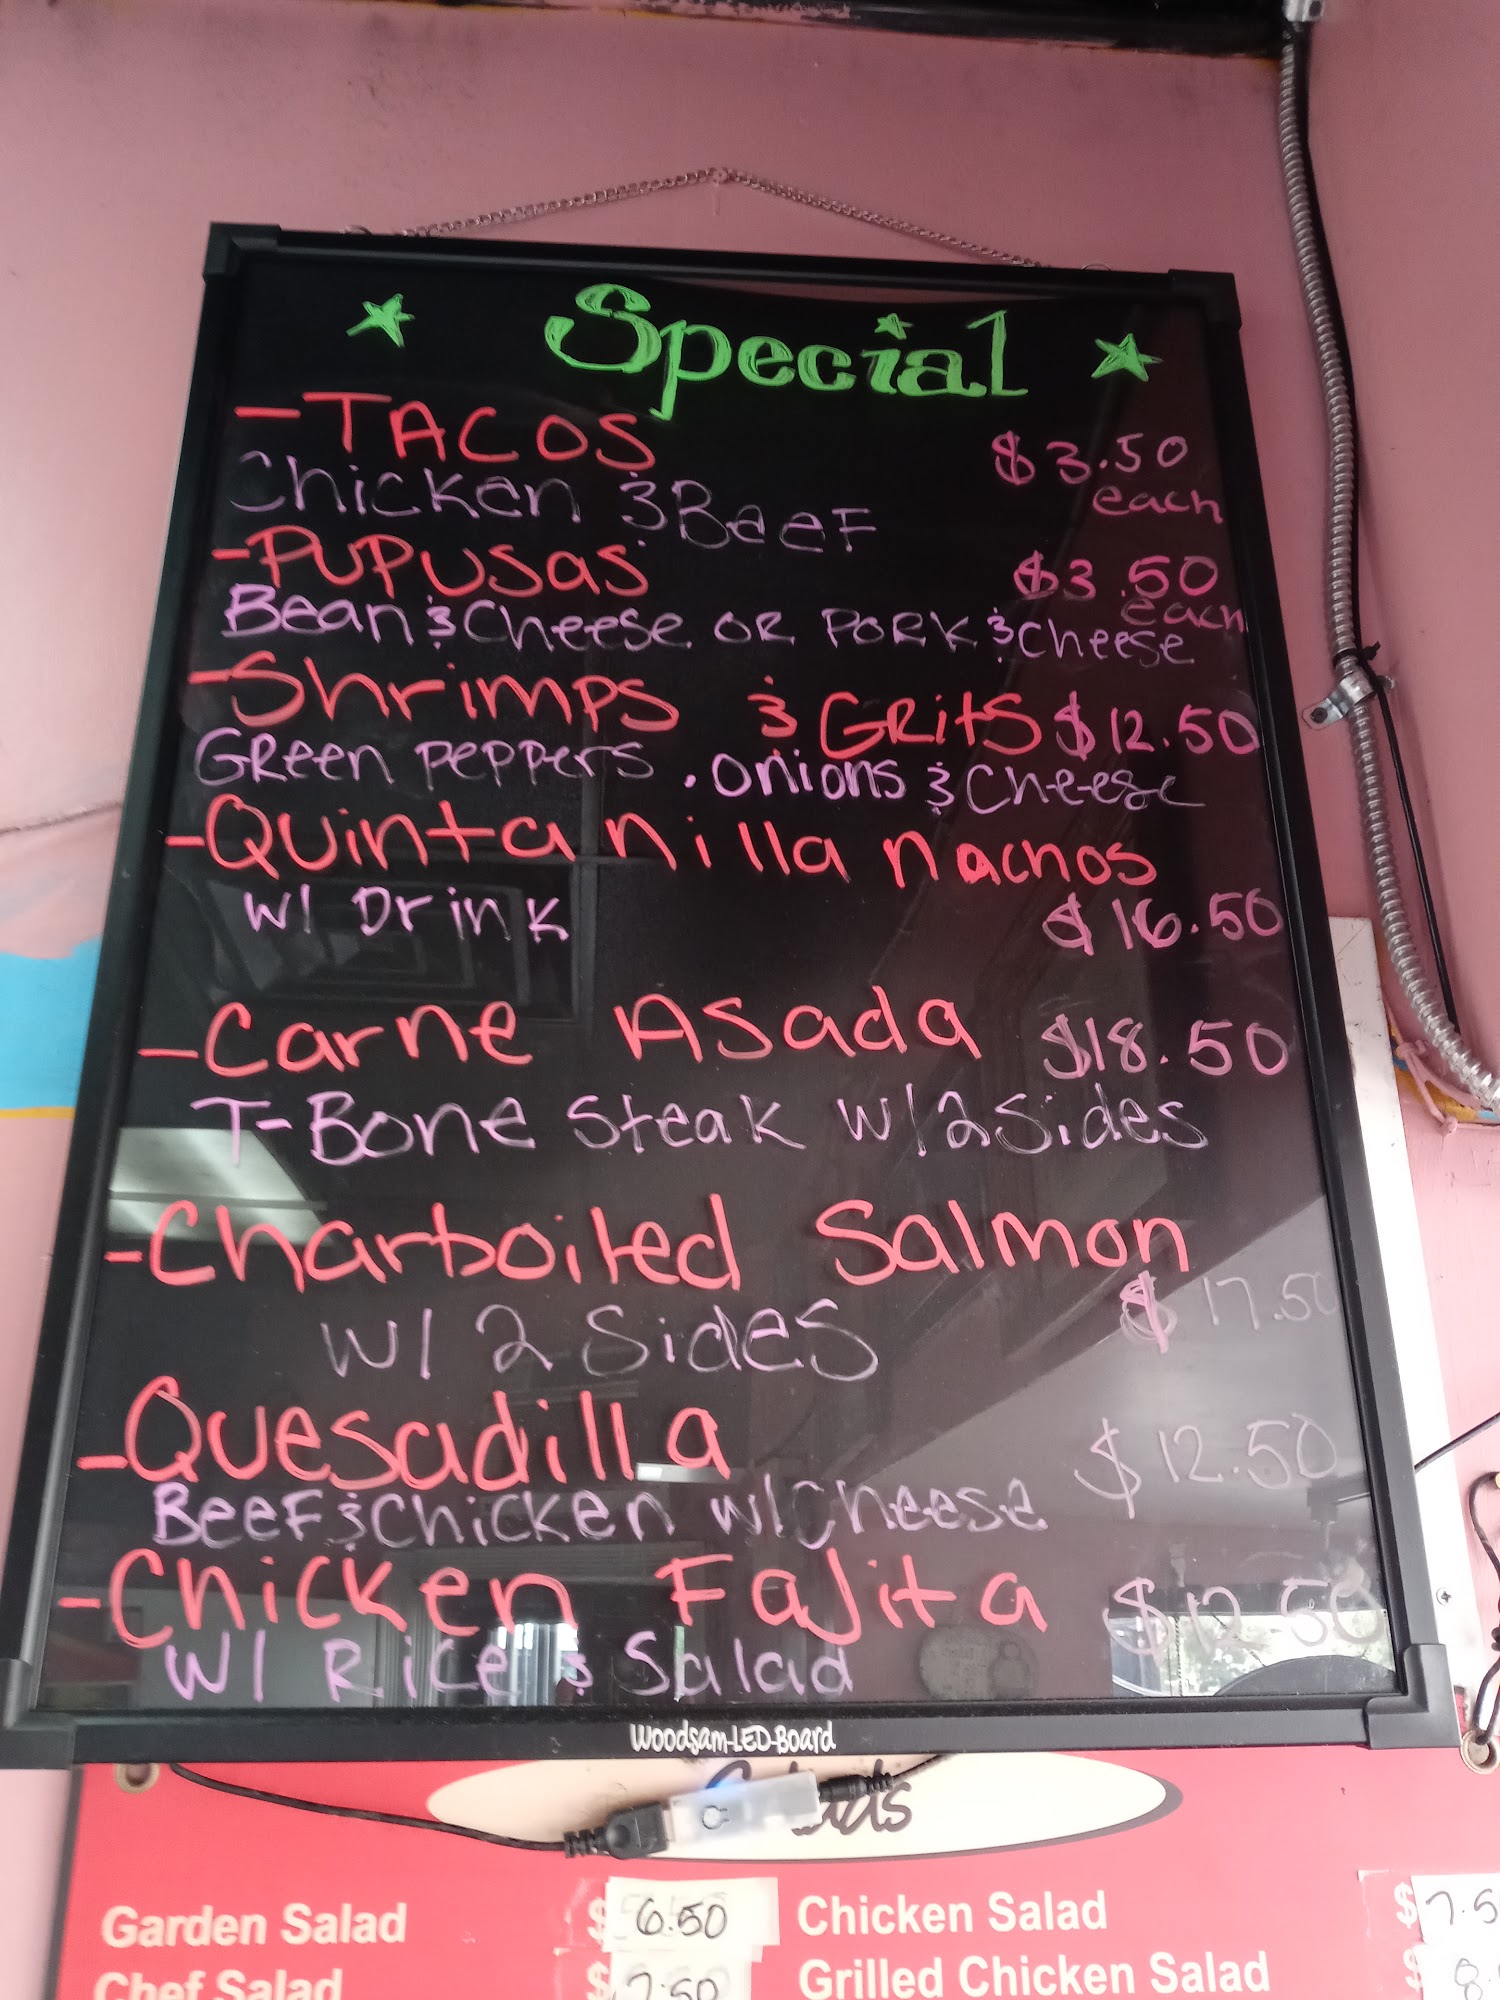 Special
- TACOS $3.50
Chicken & Beef each
- PUPUSAS $3.50
Bean & Cheese OR PORK & Cheese each
- Shrimps & Grits $12.50
Green peppers, onions & Cheese
- Quintanilla Nachos
w/ Drink $16.50
- Carne Asada $18.50
T-Bone Steak w/ 2 Sides
- Charboiled Salmon
w/ 2 Sides $17.50
- Quesadilla $12.50
Beef & Chicken w/ Cheese
- Chicken Fajita $12.50
w/ Rice & Salad
Woodsam-LED-Board
Garden Salad $6.50 Chicken Salad $7.5
Chef Salad $7.50 Grilled Chicken Salad $8.